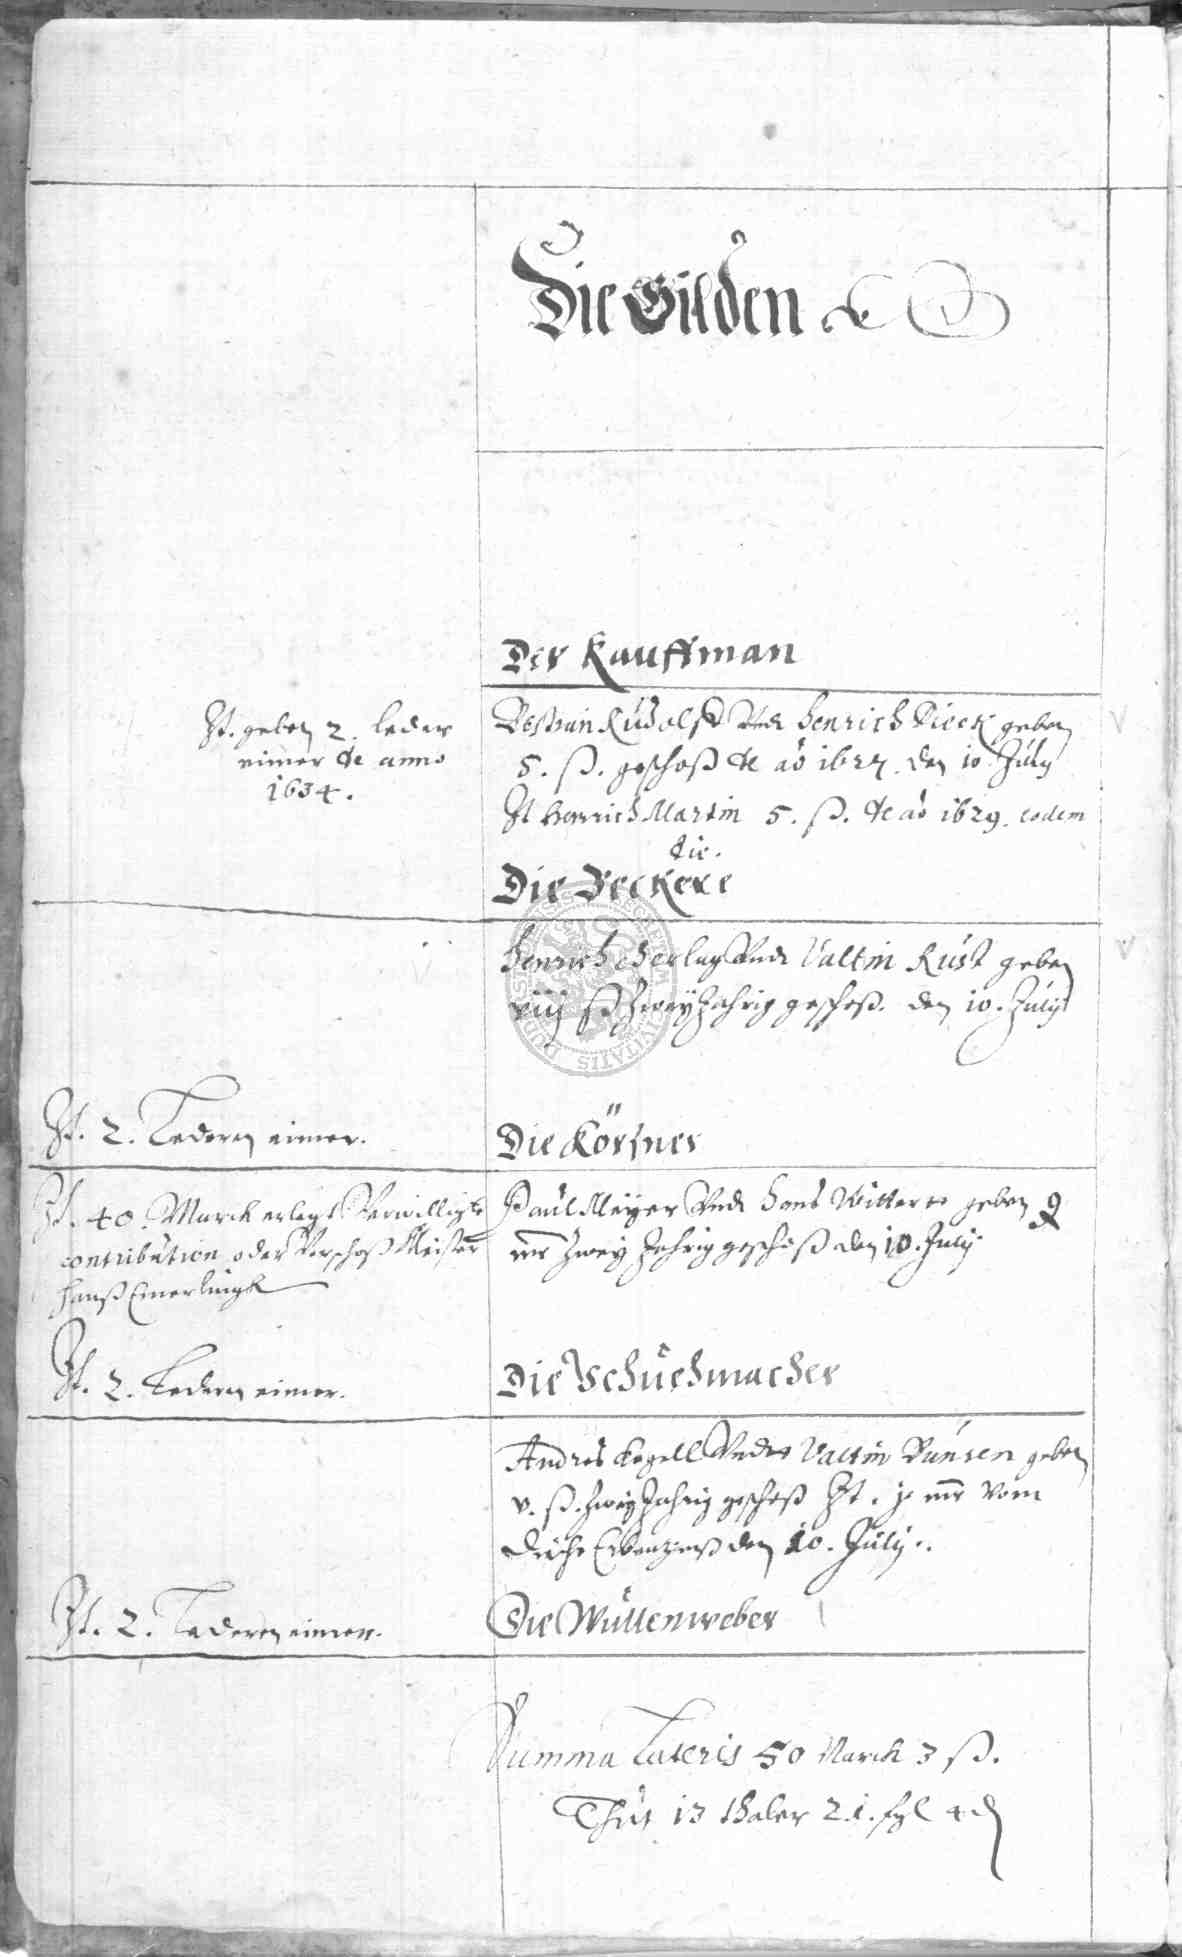 Die Gilden
Der Kauffman
It. geben 2. leder
eimer de anno
1634.
Bestian Rudolff Vndt Henrich Dieck geben
5. ß. geschoß de ao 1627. den 10 July
It Henrich Martin 5. ß. de ao 1629. eodem
die.
Die Beckere
Henrich Vndt Valtin Rust geben
viij ß Zwey Jahrig geschoß. den 10. July
It. 2. Lederen eimer.
Die Körsner
It. 40. Marck erlegt Verwilligte
contribution oder Vorschoß Meister
Hanß Emerlingk
Paul Meyer Vndt Hans Witteren geben 9
mr Zwey Jahrig geschoß den 10. July
It. 2. Lederen eimer.
Die Schuchmacher
Andres Kegell Vndt Valtin Bunsen geben
v. ß. Zwey Jahrig geschoß It. mr Vom
den 10. July.
It. 2. Lederen eimer.
Die Wullenweber
Summa Lateris 50 Marck 3 ß.
Thut 13 thaler 21. 4 d